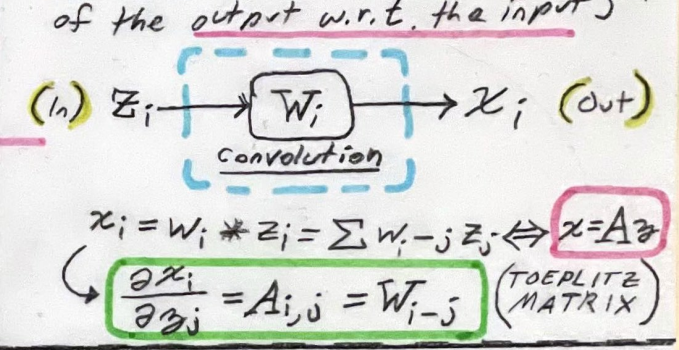 of the output w.r.t. the input)
(In) Zᵢ → Wᵢ → xᵢ (Out)
Convolution
xᵢ = Wᵢ * Zᵢ = Σ Wᵢ₋ⱼ Zⱼ ⇔ x = Az
∂xᵢ/∂zⱼ = Aᵢ,ⱼ = Wᵢ₋ⱼ (TOEPLITZ
MATRIX)